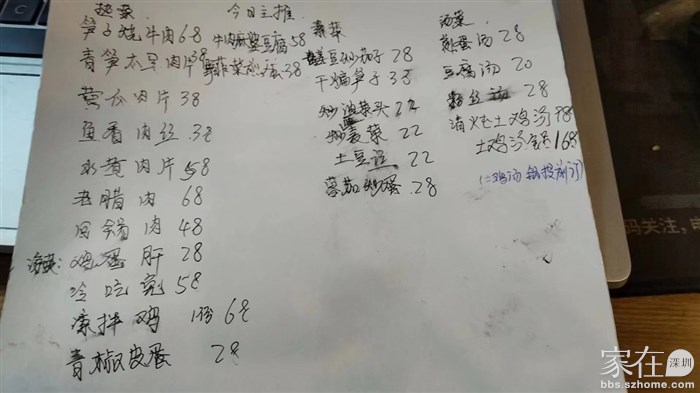 热菜
笋子烧牛肉68
青笋木耳肉片38
黄瓜肉片38
鱼香肉丝.38
水煮肉片58
老腊肉 68
回锅肉 48
凉菜:
鸡蛋肝 28
冷吃兔58
凉拌鸡 1份68
青椒皮蛋 28
今日主推
牛肉麻婆豆腐58
韭菜炒蛋38
素菜
豆炒茄子28
干煸笋子 38
炒菜头22
炒菜 22
土豆 22
蕃茄炒蛋.28
汤菜
煎蛋汤 28
豆腐汤 20
粉丝汤 28
清炖土鸡汤 98
土鸡汤锅168
(鸡汤锅提前订)
码关注，
家在深圳
bbs.szhome.com